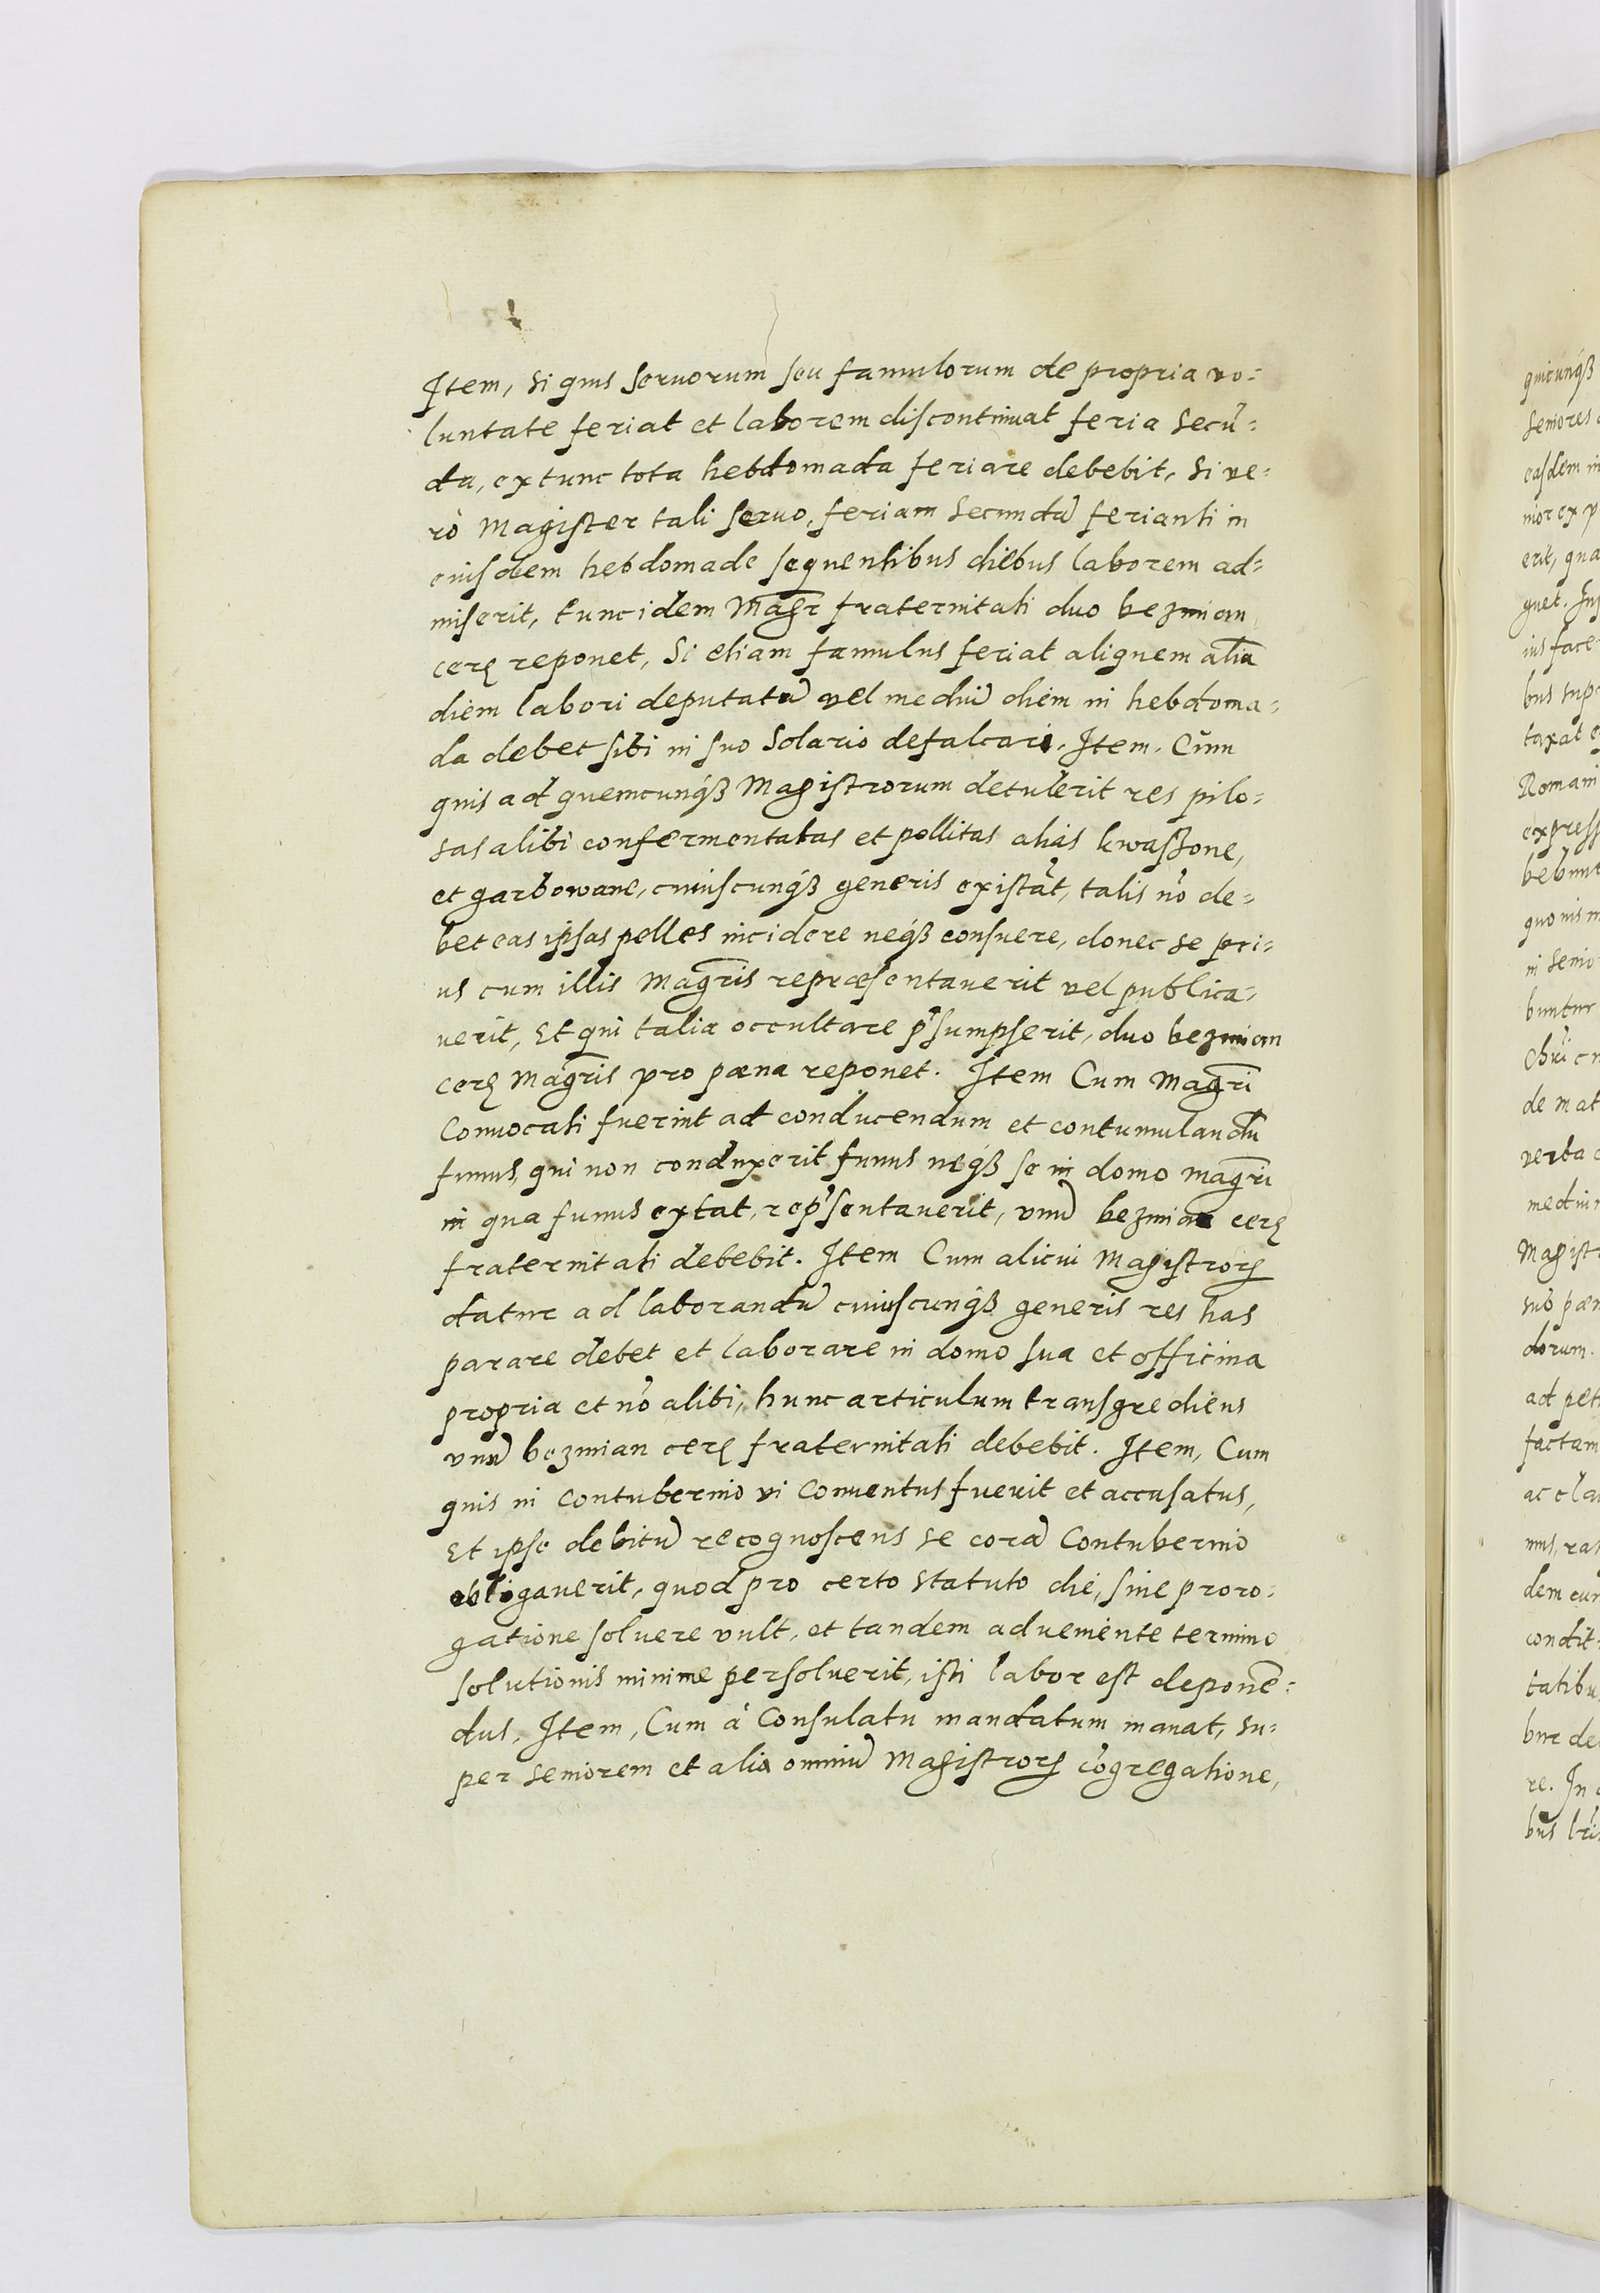 Item, si quis servorum seu famulorum de propria vo=
luntate feriat et laborem discontinuat feria secū=
da, ex tunc tota hebdomada feriare debebit, Si ve=
rò Magister tali servo, feriam secundā ferianti in
eiusdem hebdomade sequentibus diebus laborem ad=
miserit, tunc idem Magr̄ fraternitati duo bezmian
cerę reponet, Si etiam famulus feriat aliquem aliā
diem labori deputatū vel mediū diem in hebdoma=
da debet sibi in suo Solario defalcari. Item. Cùm
quis ad quemcunqꝫ Magistrorum detulerit res pilo=
sas alibi confermentatas et pollitas aliàs kwaszone,
et garbowane, cuiuscunqꝫ generis existāt, talis nō de=
bet eas ipsas pelles incidere neqꝫ consuere, donec se pri=
us cum illis Magr̄is repræsentaverit vel publica=
uerit, Et qui talia occultare p̄sumpserit, duo bezmian
cerę Magr̄is pro pæna reponet. Item Cum Magr̄i
Convocati fuerint ad conducendum et contumulandū
funus, qui non conduxerit funus neqꝫ se in domo magr̄i
in qua funus extat, rep̄sentauerit, vnū bezmian cerę
fraternitati debebit. Item Cum alicui Magistrorꝫ
datur ad laborandū cuiuscunqꝫ generis res has
parare debet et laborare in domo sua et officina
propria et nō alibi, hunc articulum transgrediens
vnū bezmian cerę fraternitati debebit. Item, Cum
quis in Contubernio vi Conventus fuerit et accusatus,
Et ipse debitū recognoscens se corā Contubernio
obligaverit, quod pro certo statuto die, sine proro=
gatione solvere vult, et tandem adveniente termino
solutionis minime persolverit, isti labor est deponē=
dus. Item, Cum à Consulatu mandatum manat, su=
per seniorem et alia omniū Magistrorꝫ cōgregatione,